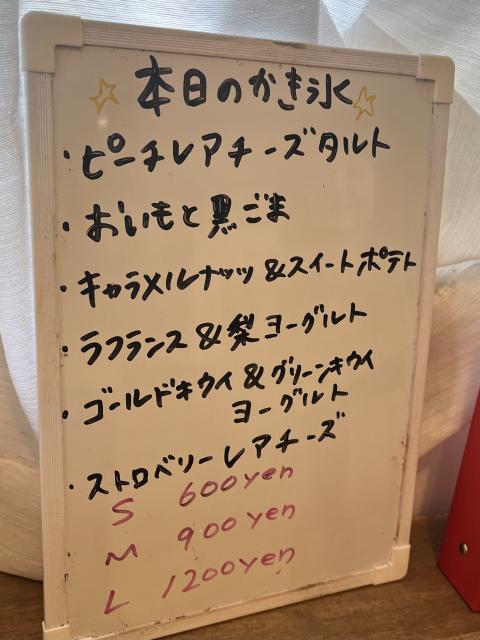 本日のかき氷
・ピーチレアチーズタルト
・おいもと黒ごま
・キャラメルナッツ&スイートポテト
・ラフランス&梨ヨーグルト
・ゴールドキウイ&グリーンキウイ
ヨーグルト
・ストロベリーレアチーズ
S 600yen
M 900yen
L 1200yen